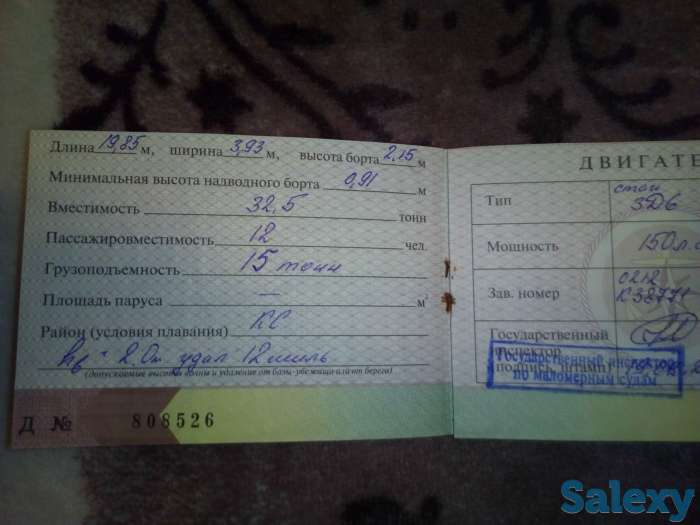 Длина 19,85 м, ширина 3,93 м, высота борта 2,15 м
Минимальная высота надводного борта 0,91 м
Вместимость 32,5 тонн
Пассажировместимость 12 чел.
Грузоподъемность 15 тонн
Площадь паруса — м²
Район (условия плавания) КС
hв = 2.0м. удал 12 миль
(допускаемые высота волны и удаление от базы-убежища или от берега)
Д № 808526
ДВИГАТЕ
Тип стац 3Д6
Мощность 150 л.с
Зав. номер 0212 К38771
Государственный
инспектор
(подпись, штамп)
Государственный инспектор
по маломерным судам
Salexy